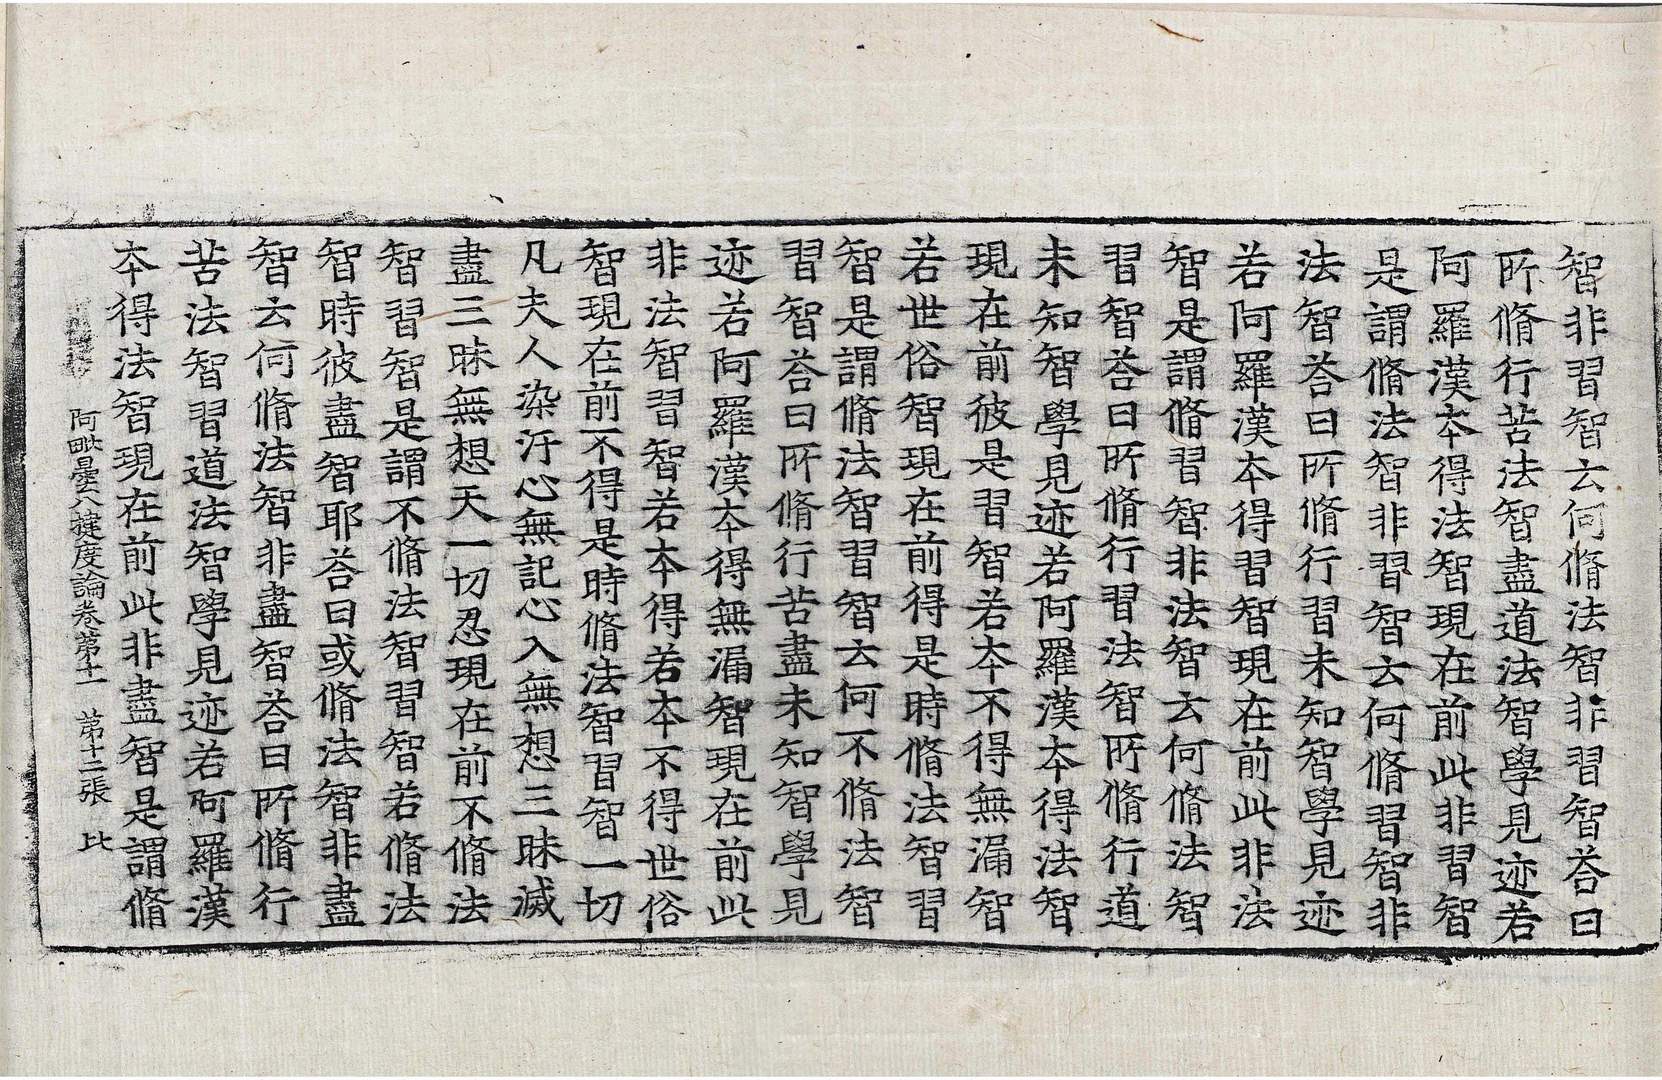 智非習智云何脩法智非習智荅曰
所脩行苦法智盡道法智學見迹若
阿羅漢本得法智現在前此非習智
是謂脩法智非習智云何脩習智非
法智荅曰所脩行習未知智學見迹
若阿羅漢本得習智現在前此非法
智是謂脩習智非法智云何脩法智
習智荅曰所脩行習法智所脩行道
未知智學見迹若阿羅漢本得法智
現在前彼是習智若本不得無漏智
若世俗智現在前得是時脩法智習
智是謂脩法智習智云何不脩法智
習智荅曰所脩行苦盡未知智學見
迹若阿羅漢本得無漏智現在前此
非法智習智若本得若本不得世俗
智現在前不得是時脩法智習智一切
凡夫人染汙心無記心入無想三昧滅
盡三昧無想天一切忍現在前不脩法
智習智是謂不脩法智習智若脩法
智時彼盡智耶荅曰或脩法智非盡
智云何脩法智非盡智荅曰所脩行
苦法智習道法智學見迹若阿羅漢
本得法智現在前此非盡智是謂脩
阿毗曇八揵度論卷第十一 第十二張 比